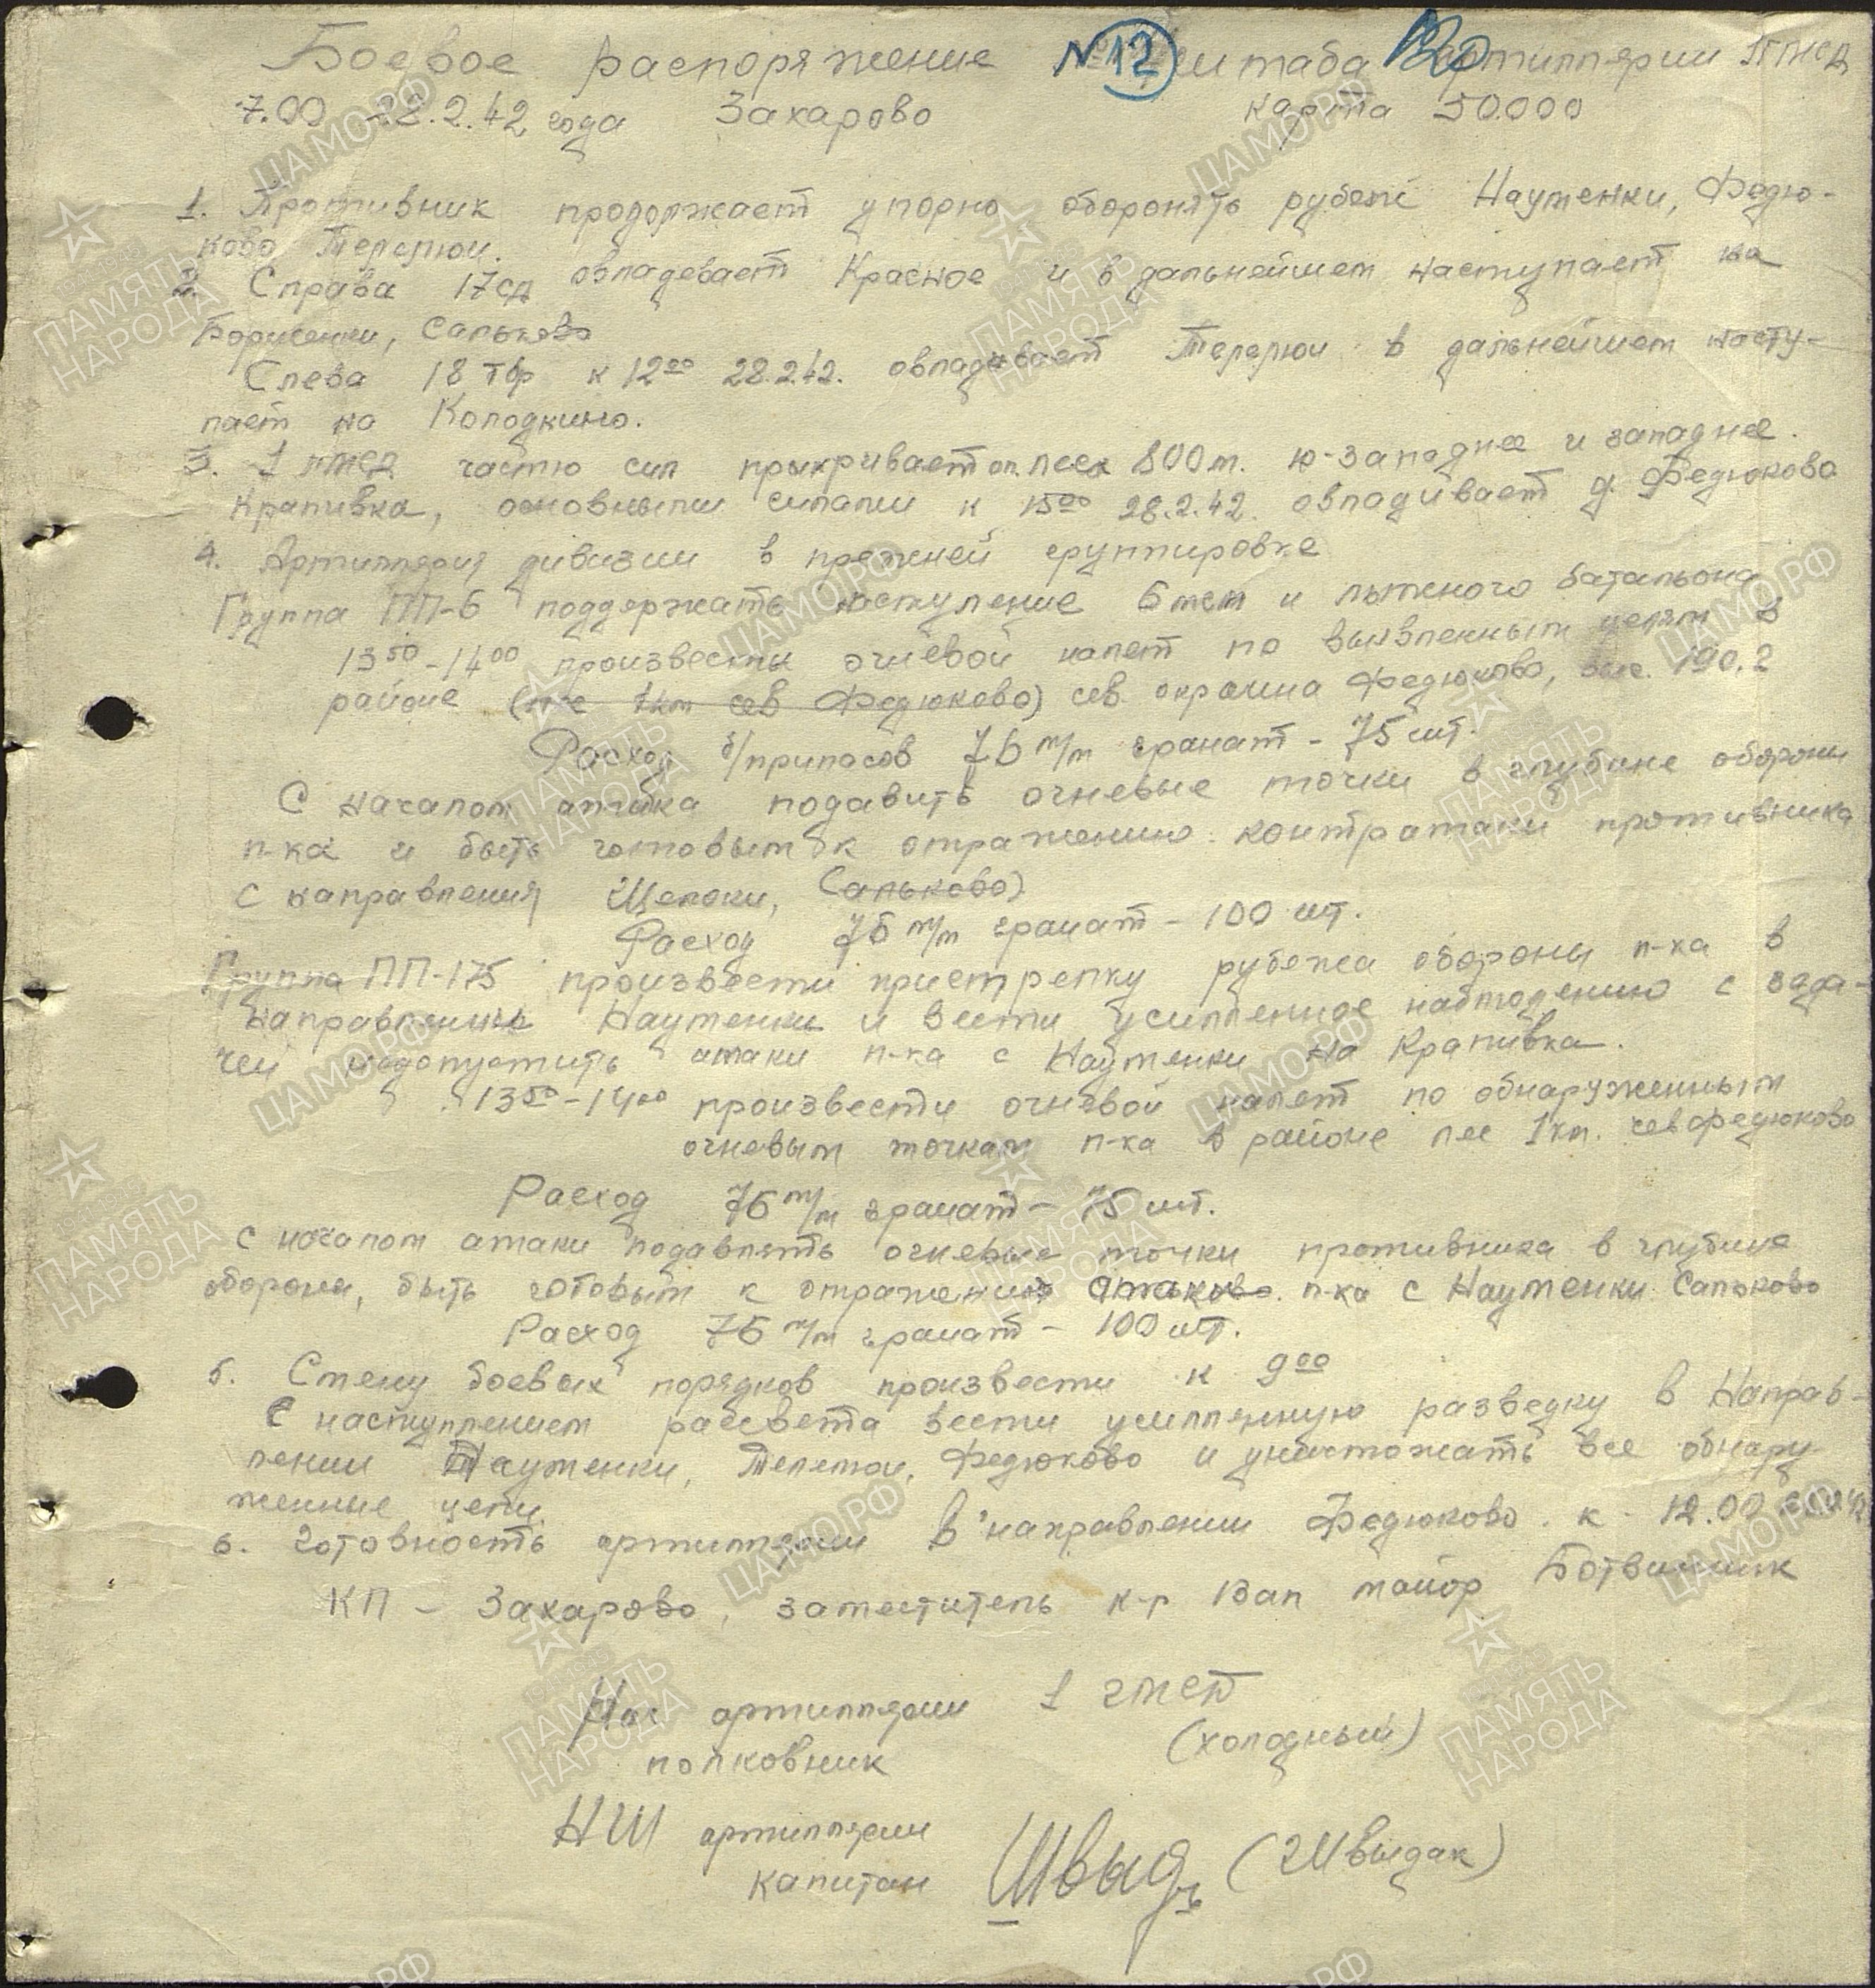 Боевое распоряжение №12 штаба артиллярии 1ГМСД
7.00 28.2.42 года Захарово карта 50.000
1. Противник продолжает упорно оборонять рубеж Науменки, Федю-
ково
2. Справа 17сд овладевает Красное и в дальнейшем наступает на
Борменки, Сальково
Слева 18 тбр к 12⁰⁰ 28.2.42. овладивает в дальнейшем насту-
пает на Колодкино.
3. 1 гмсд частю сил прыкривает оп. леса 800м. ю-западнее и западнее
Крапивка, основными силами к 15⁰⁰ 28.2.42. овладивает д. Федюково
4. Артиллярия дивизии в прежней группировке
Группа ПП-6 поддержать наступление 6мсп и лыжного батальона
13⁵⁰-14⁰⁰ произвести огневой налет по выявленным целям в
районе (лес 1км сев Федюково) сев. окраина Федюково, выс. 190,2
Расход б/припасов 76 м/м гранат - 75 шт.
С началом атака подавить огневые точки в глубине обороны
п-ка и быть готовым к отражению контратаки противника
с направления Щелоки, Сальково)
Расход 76 м/м гранат - 100 шт.
Группа ПП-175 произвести пристрелку рубежа обороны п-ка в
направлении Науменки и вести усилленное наблюдению с зада-
чеи недопустить атаки п-ка с Науменки на Крапивка.
13⁵⁰-14⁰⁰ произвести огневой налет по обнаруженным
огневым точкам п-ка в районе лес 1км. сев Федюково
Расход 76 м/м гранат - 75 шт.
С началом атаки подавлять огневые точки противника в глубине
обороны, быть готовым к отражению п-ка с Науменки Сальково
Расход 76 м/м гранат - 100 шт.
5. Смену боевых порядков произвести к 9⁰⁰
С наступлением рассвета вести усилленную разведку в Направ-
лении Науменки, Федюково и уничтожать все обнару
женные цели.
6. Готовность артиллярии в направлении Федюково к 12.00
КП - Захарово, заместитель к-р 13ап майор Ботвинник
Нач артиллярии 1 гмсд
полковник (холодный)
НШ артиллярии
капитан Швыд (Швыдак)
ЦАМО.РФ
ПАМЯТЬ
НАРОДА